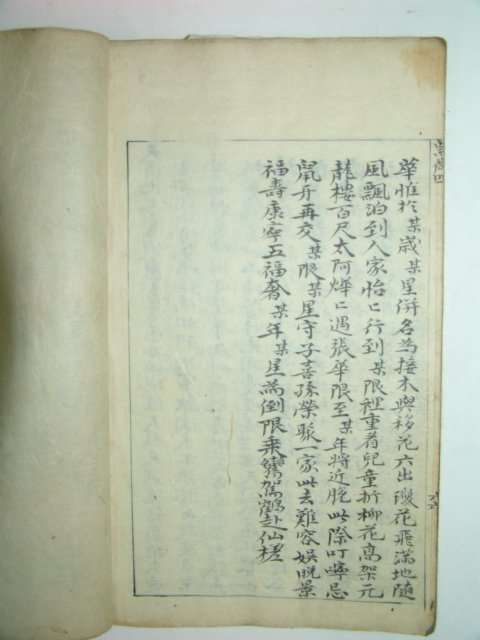 華惟於某歲某星併名為接木與移花六出瓊花飛滿地隨
風飄泊到人家怡〻行到某限裡重看兒童折柳花高架元
龍樓百尺太阿燁〻遇張華限至某年將近脫此際叮嚀忌
鼠牙再交某限某星守子喜孫榮聚一家此去難容娛晚景
福壽康寧五福奢某年某星為倒限乘鸞駕鶴赴仙槎